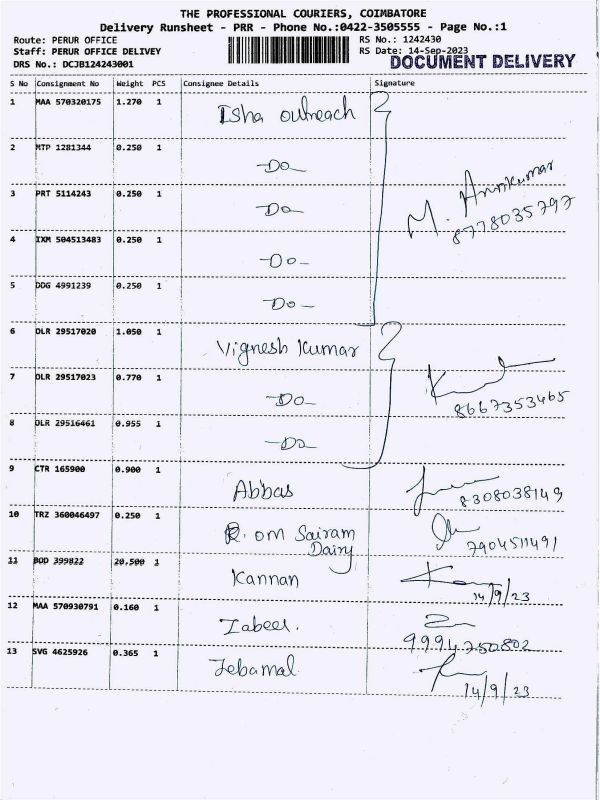 THE PROFESSIONAL COURIERS, COIMBATORE
Delivery Runsheet - PRR - Phone No.:0422-3505555 - Page No.:1
Route: PERUR OFFICE RS No.: 1242430
Staff: PERUR OFFICE DELIVEY RS Date: 14-Sep-2023
DRS No.: DCJB124243001 DOCUMENT DELIVERY
S No Consignment No Weight PCS Consignee Details Signature
1 MAA 570320175 1.270 1 Isha outreach
2 MTP 1281344 0.250 1 -Do-
3 PRT 5114243 0.250 1 -Do- M. Arunkumar
8778035797
4 IXM 504513483 0.250 1 -Do-
5 DDG 4991239 0.250 1 -Do-
6 DLR 29517020 1.050 1 Vignesh Kumar
7 DLR 29517023 0.770 1 -Do- 8667353465
8 DLR 29516461 0.955 1 -Do-
9 CTR 165900 0.900 1 Abbas 8308038149
10 TRZ 360046497 0.250 1 R. om Sairam
Dairy 7904511491
11 BOD 399822 20.500 1 Kannan 14/9/23
12 MAA 570930791 0.160 1 Zabeer. 9994750802
13 SVG 4625926 0.365 1 Jebamal 14/9/23